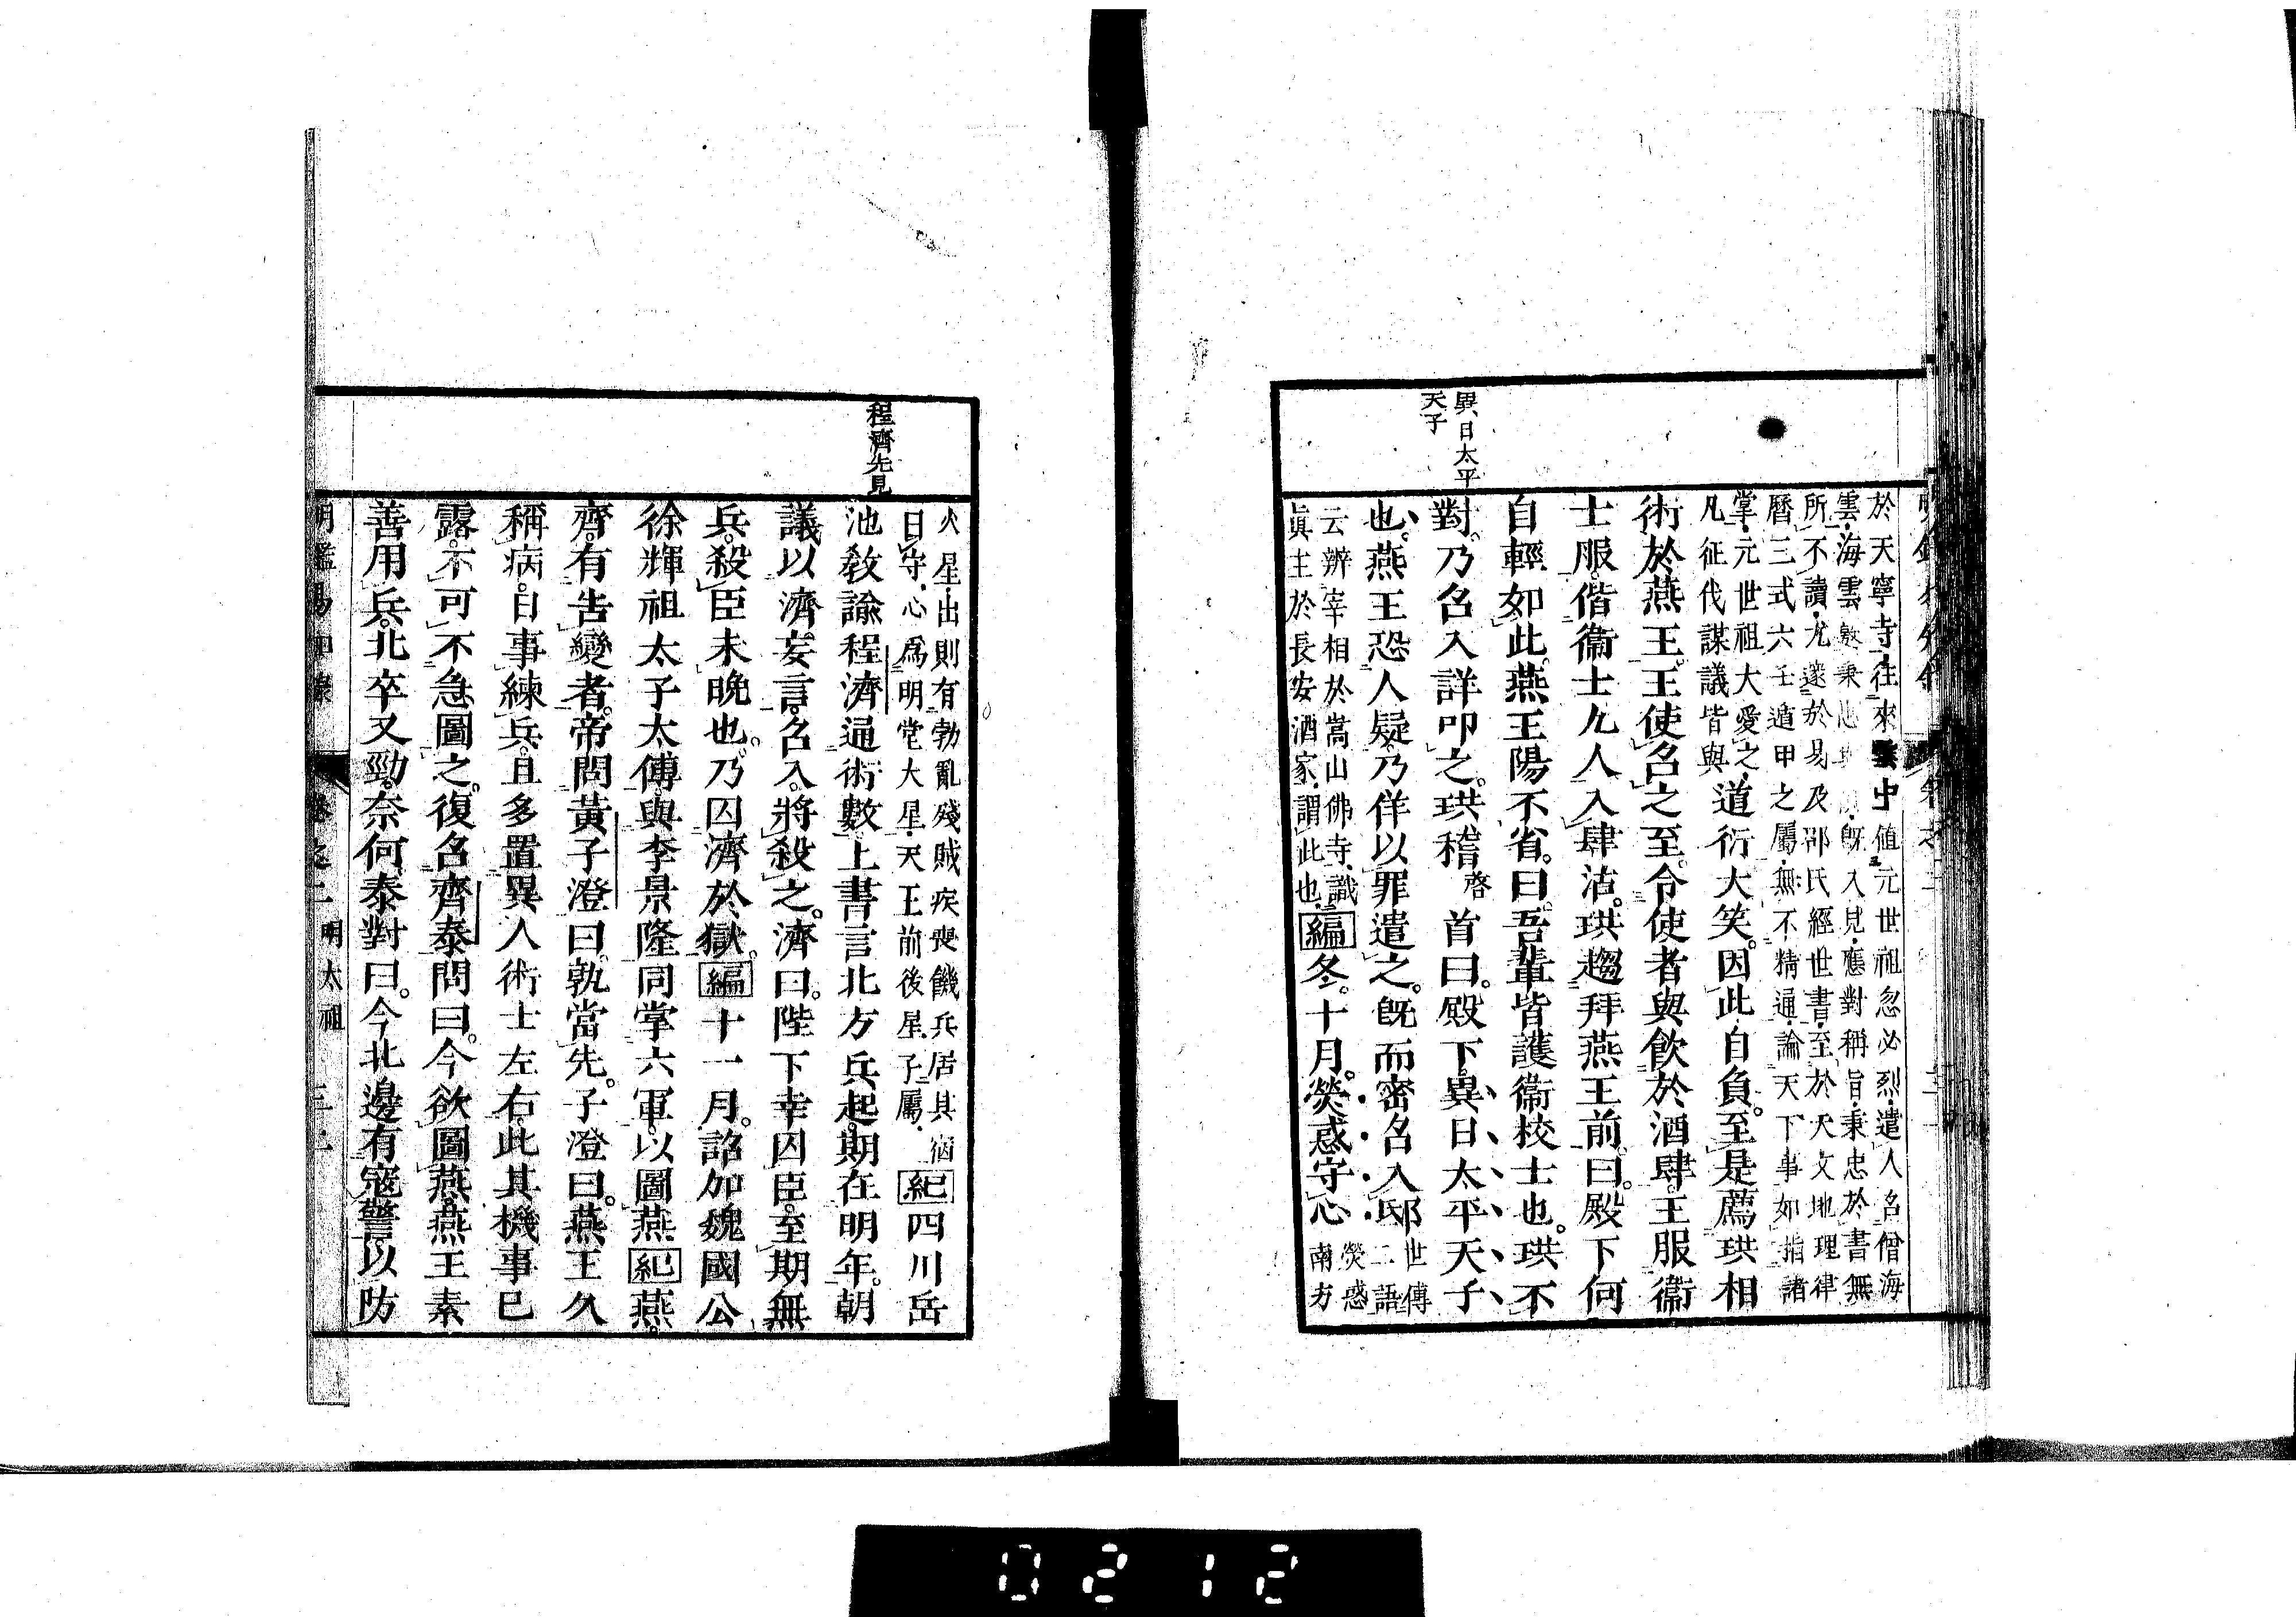 異日太平
天子
於天寧寺往來雲中値元世祖忽必烈遣人名僧海
雲海雲 旣入見應對稱旨秉忠於書無
所不讀尤邃於易及邵氏經世書至於天文地理律
曆三式六壬遁甲之屬無不精通論天下事如指諸
掌元世祖大愛之
凡征伐謀議皆與
道衍大笑因此自負至是薦珙相
術於燕王王使名之至令使者與飲於酒肆王服衞
士服偕衞士九人入肆沽珙趨拜燕王前曰殿下何
自輕如此燕王陽不省曰吾輩皆護衞校士也珙不
對乃名入詳叩之珙稽啓首曰殿下異日太平天子
也燕王恐人疑乃佯以罪遣之旣而密名入邸
世傳
二語
云辨宰相於嵩山佛寺識
眞主於長安酒家謂此也
編冬十月熒惑守心
熒惑
南方
程濟先見
火星出則有勃亂殘賊疾喪饑兵居其宿
日守心爲明堂大星天王前後星子屬
紀四川岳
池敎諭程濟通術數上書言北方兵起期在明年朝
議以濟妄言名入將殺之濟曰陛下幸囚臣至期無
兵殺臣未晚也乃囚濟於獄編十一月詔加魏國公
徐輝祖太子太傅與李景隆同掌六軍以圖燕紀燕
齊有告變者帝問黃子澄曰孰當先子澄曰燕王久
稱病日事練兵且多置異人術士左右此其機事已
露不可不急圖之復名齊泰問曰今欲圖燕燕王素
善用兵北卒又勁奈何泰對曰今北邊有寇警以防
卷之二 明太祖
0212